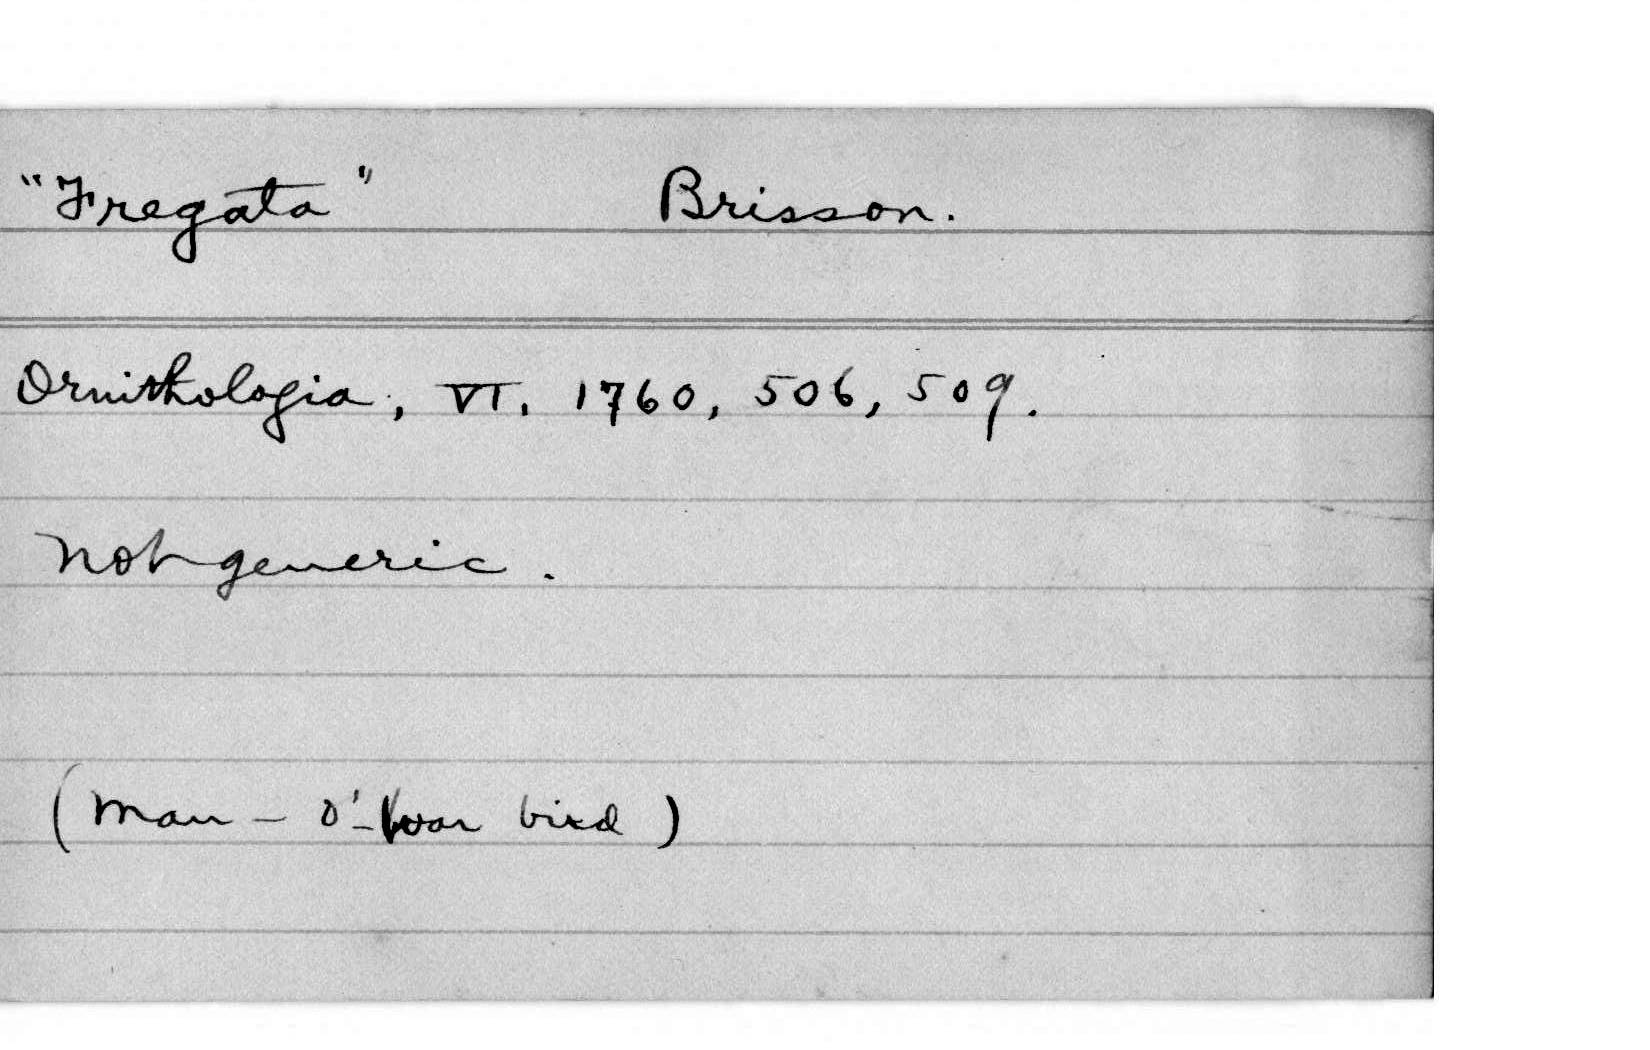 "Fregata" Brisson.
Ornithologia, VI. 1760, 506, 509.
not generic.
(Man-o'-War bird)